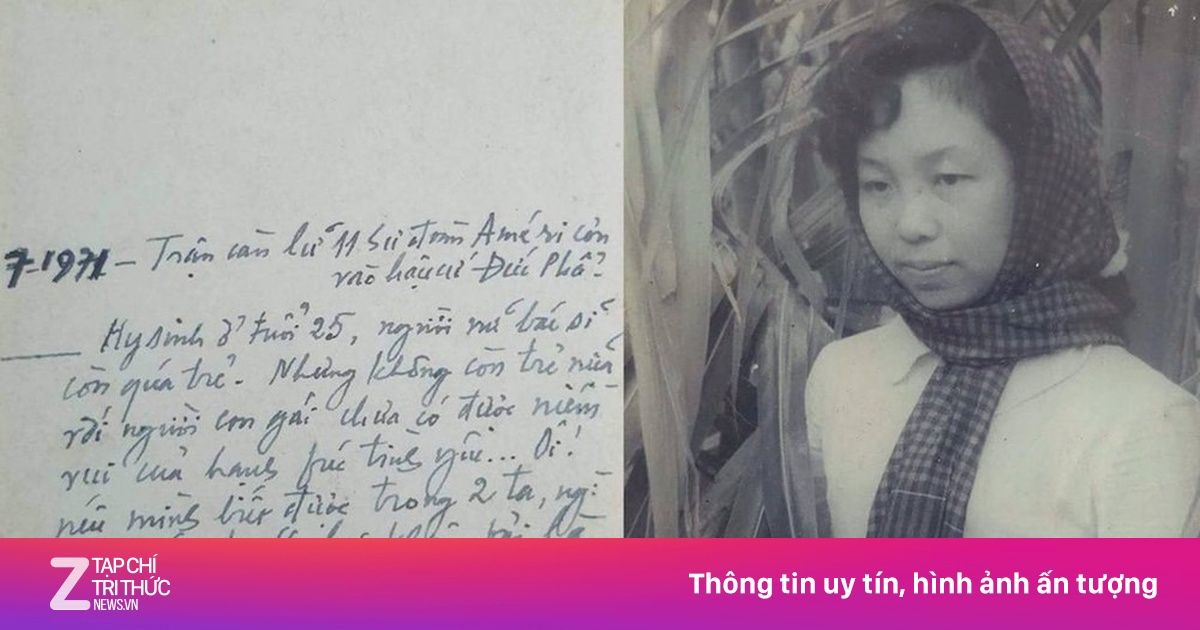 7-1971 – Trận càn lữ 11 sư đoàn Améri còn
vào hậu cứ Đức Phổ.
Hy sinh ở tuổi 25, người nữ bác sĩ
còn quá trẻ. Nhưng không còn trẻ nữa
với người con gái chưa có được niềm
vui của hạnh phúc tình yêu... Ôi!
nếu mình biết được trong 2 ta,
TẠP CHÍ
TRI THỨC
NEWS.VN
Thông tin uy tín, hình ảnh ấn tượng